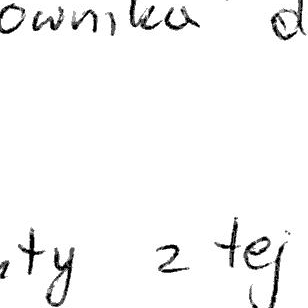 ownika d
ty z tej